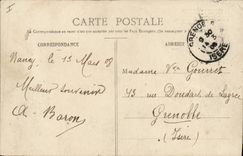 CARTE POSTALE
CORRESPONDANCE
ADRESSE
GRENOBLE
ISERE
Nancy, le 13 Mars 08
Meilleur souvenir
A. Baron
Madame Vve Gourret
43 rue Doudart de Lagrée
Grenoble
(Isère)